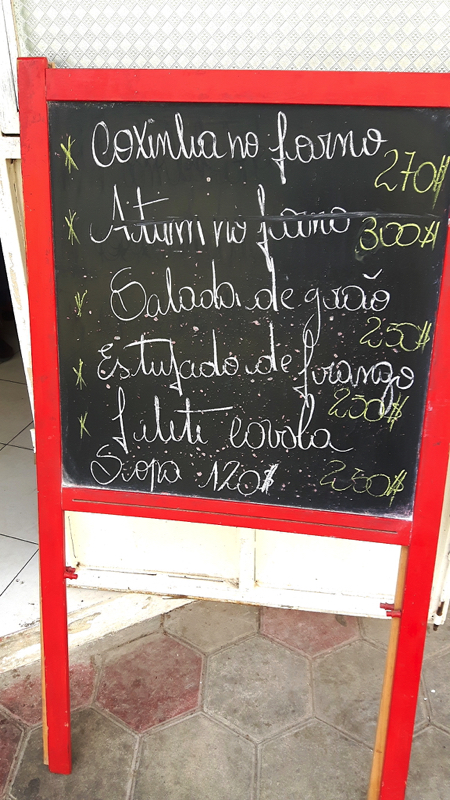 Coxinha no forno 270$
Atum no forno 300$
Salada de grão
250$
Estufado de frango
250$
Filete cavala
Sopa 120$ 250$